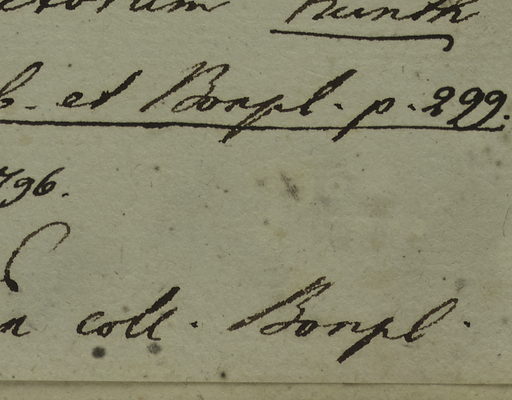 Kunth
et Bonpl. p. 299.
796.
coll. Bonpl.